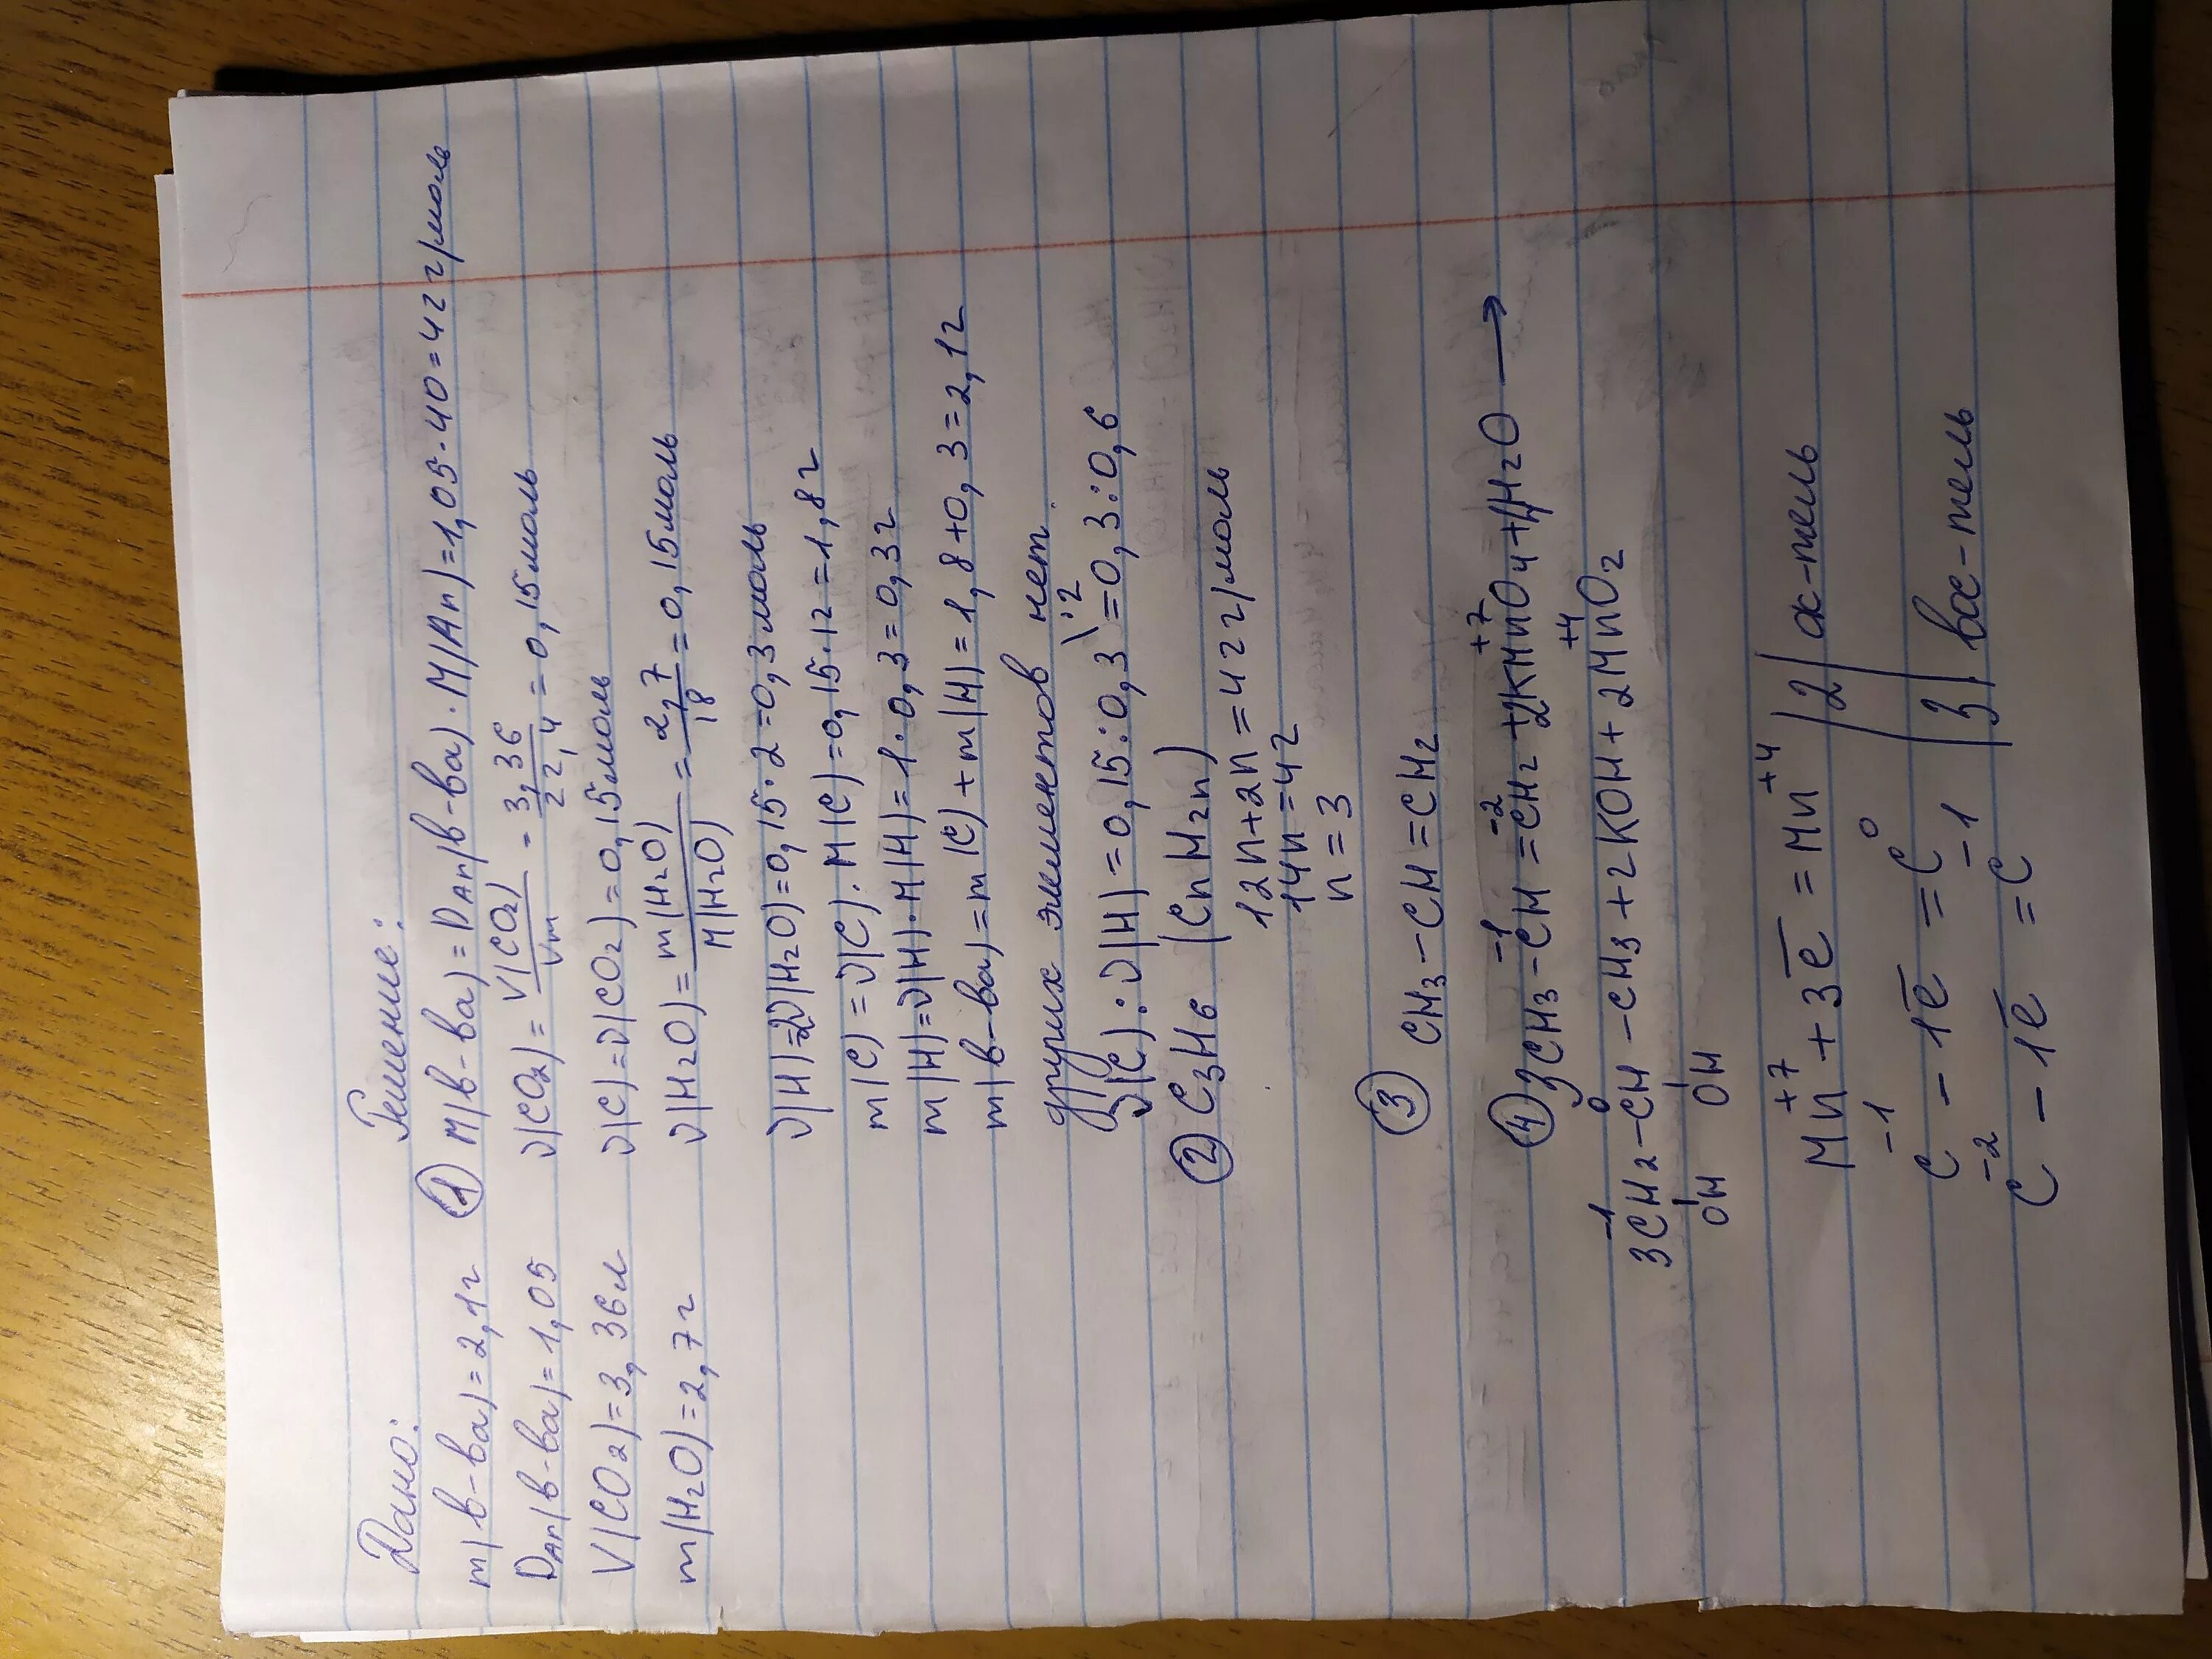 Дано:
m(в-ва)=2,1г
DAr(в-ва)=1,05
V(CO2)=3,36л
m(H2O)=2,7г
Решение:
① M(в-ва)=DAr(в-ва)·M(Ar)=1,05·40=42г/моль
ν(CO2)=V(CO2)/Vm=3,36/22,4=0,15моль
ν(C)=ν(CO2)=0,15моль
ν(H2O)=m(H2O)/M(H2O)=2,7/18=0,15моль
ν(H)=2ν(H2O)=0,15·2=0,3моль
m(C)=ν(C)·M(C)=0,15·12=1,8г
m(H)=ν(H)·M(H)=1·0,3=0,3г
m(в-ва)=m(C)+m(H)=1,8+0,3=2,1г
других элементов нет.
ν(C):ν(H)=0,15:0,3\·2=0,3:0,6
② C3H6 (CnH2n)
12n+2n=42г/моль
14n=42
n=3
③ CH3-CH=CH2
-1 -2 +7
④ 3CH3-CH=CH2+2KMnO4+4H2O→
-1 0 +4
3CH2-CH-CH3+2KOH+2MnO2
OH OH
Mn+7+3e=Mn+4 |2| ок-тель
C-1-1e=C0
|3| вос-тель
C-2-1e=C-1